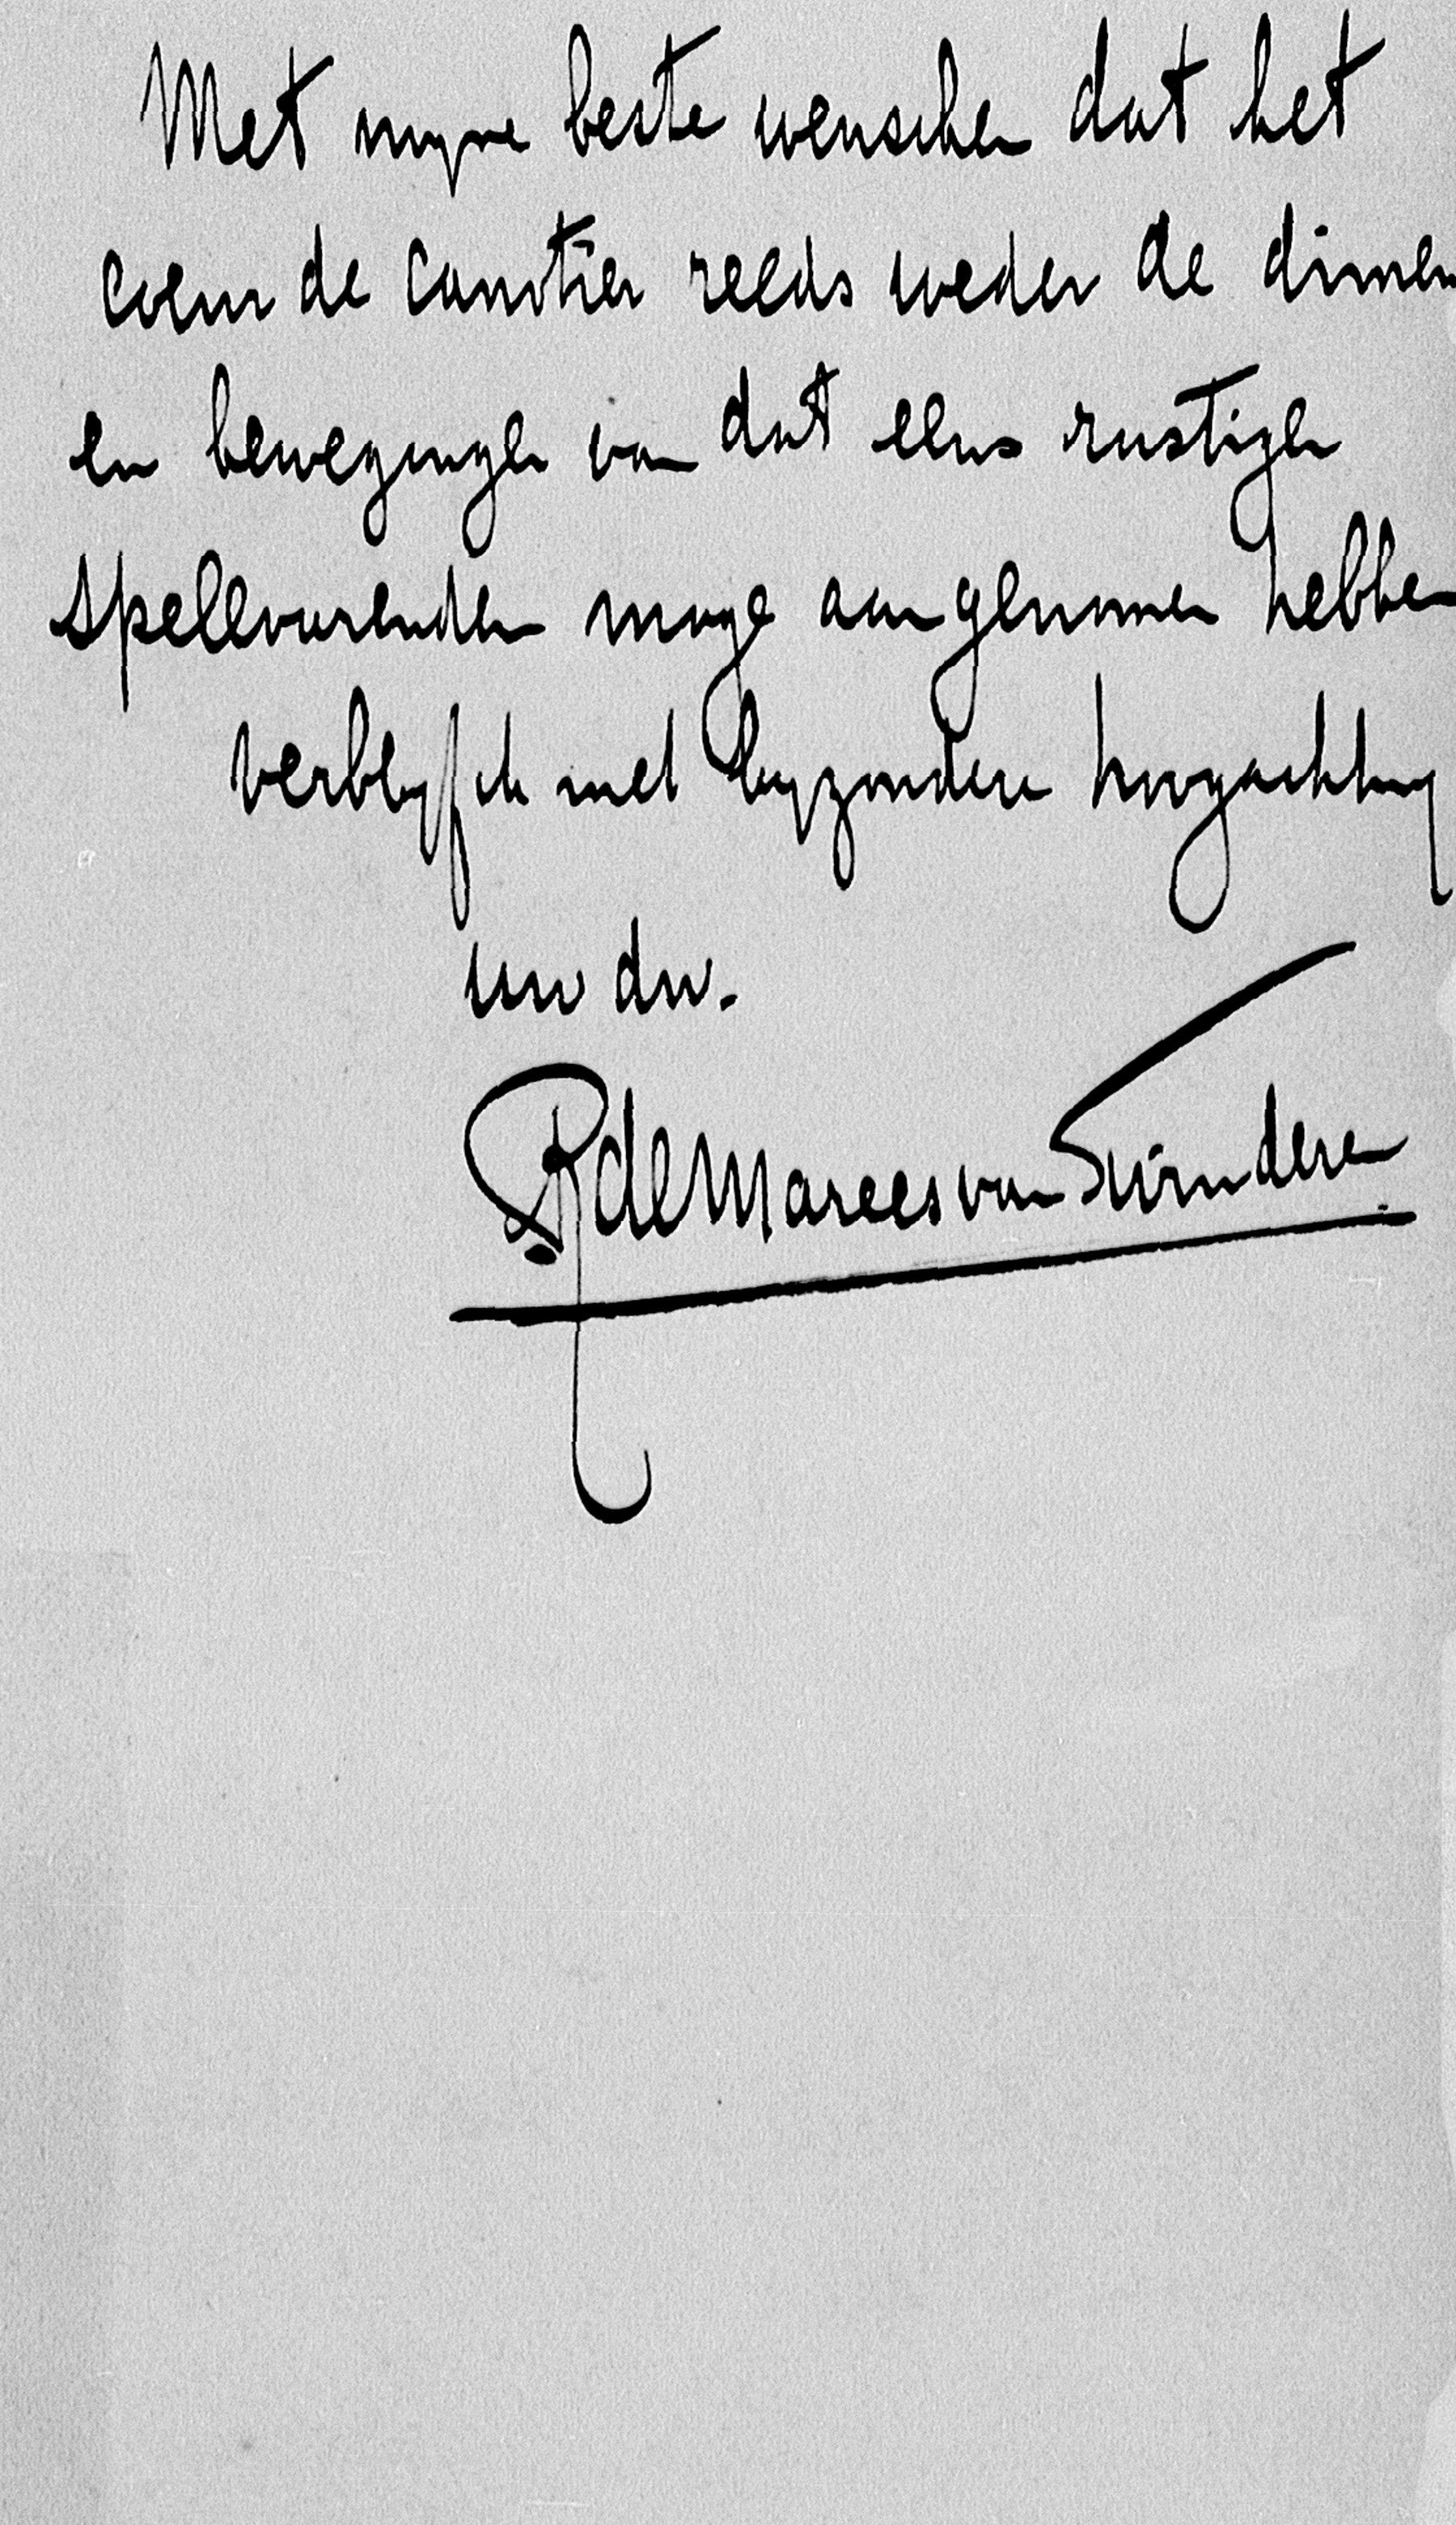 Met mijne beste wenschen dat het
coeur de canotier reeds weder de dimen
en bewegingen van dat eens rustigen
spelevarenden moge aangenomen hebben
verblijf ik met byzondere hoogachting
uw dw.
R de Marees van Swinderen